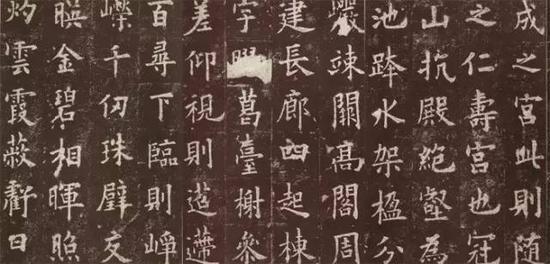 成之宮此則随
之仁壽宮也冠
山抗殿絕壑為
池跨水架楹分
巖竦闕高閣周
建長廊四起棟
宇膠葛臺榭參
差仰視則迢遰
百尋下臨則崢
嶸千仞珠璧交
暎金碧相暉照
灼雲霞蔽虧日